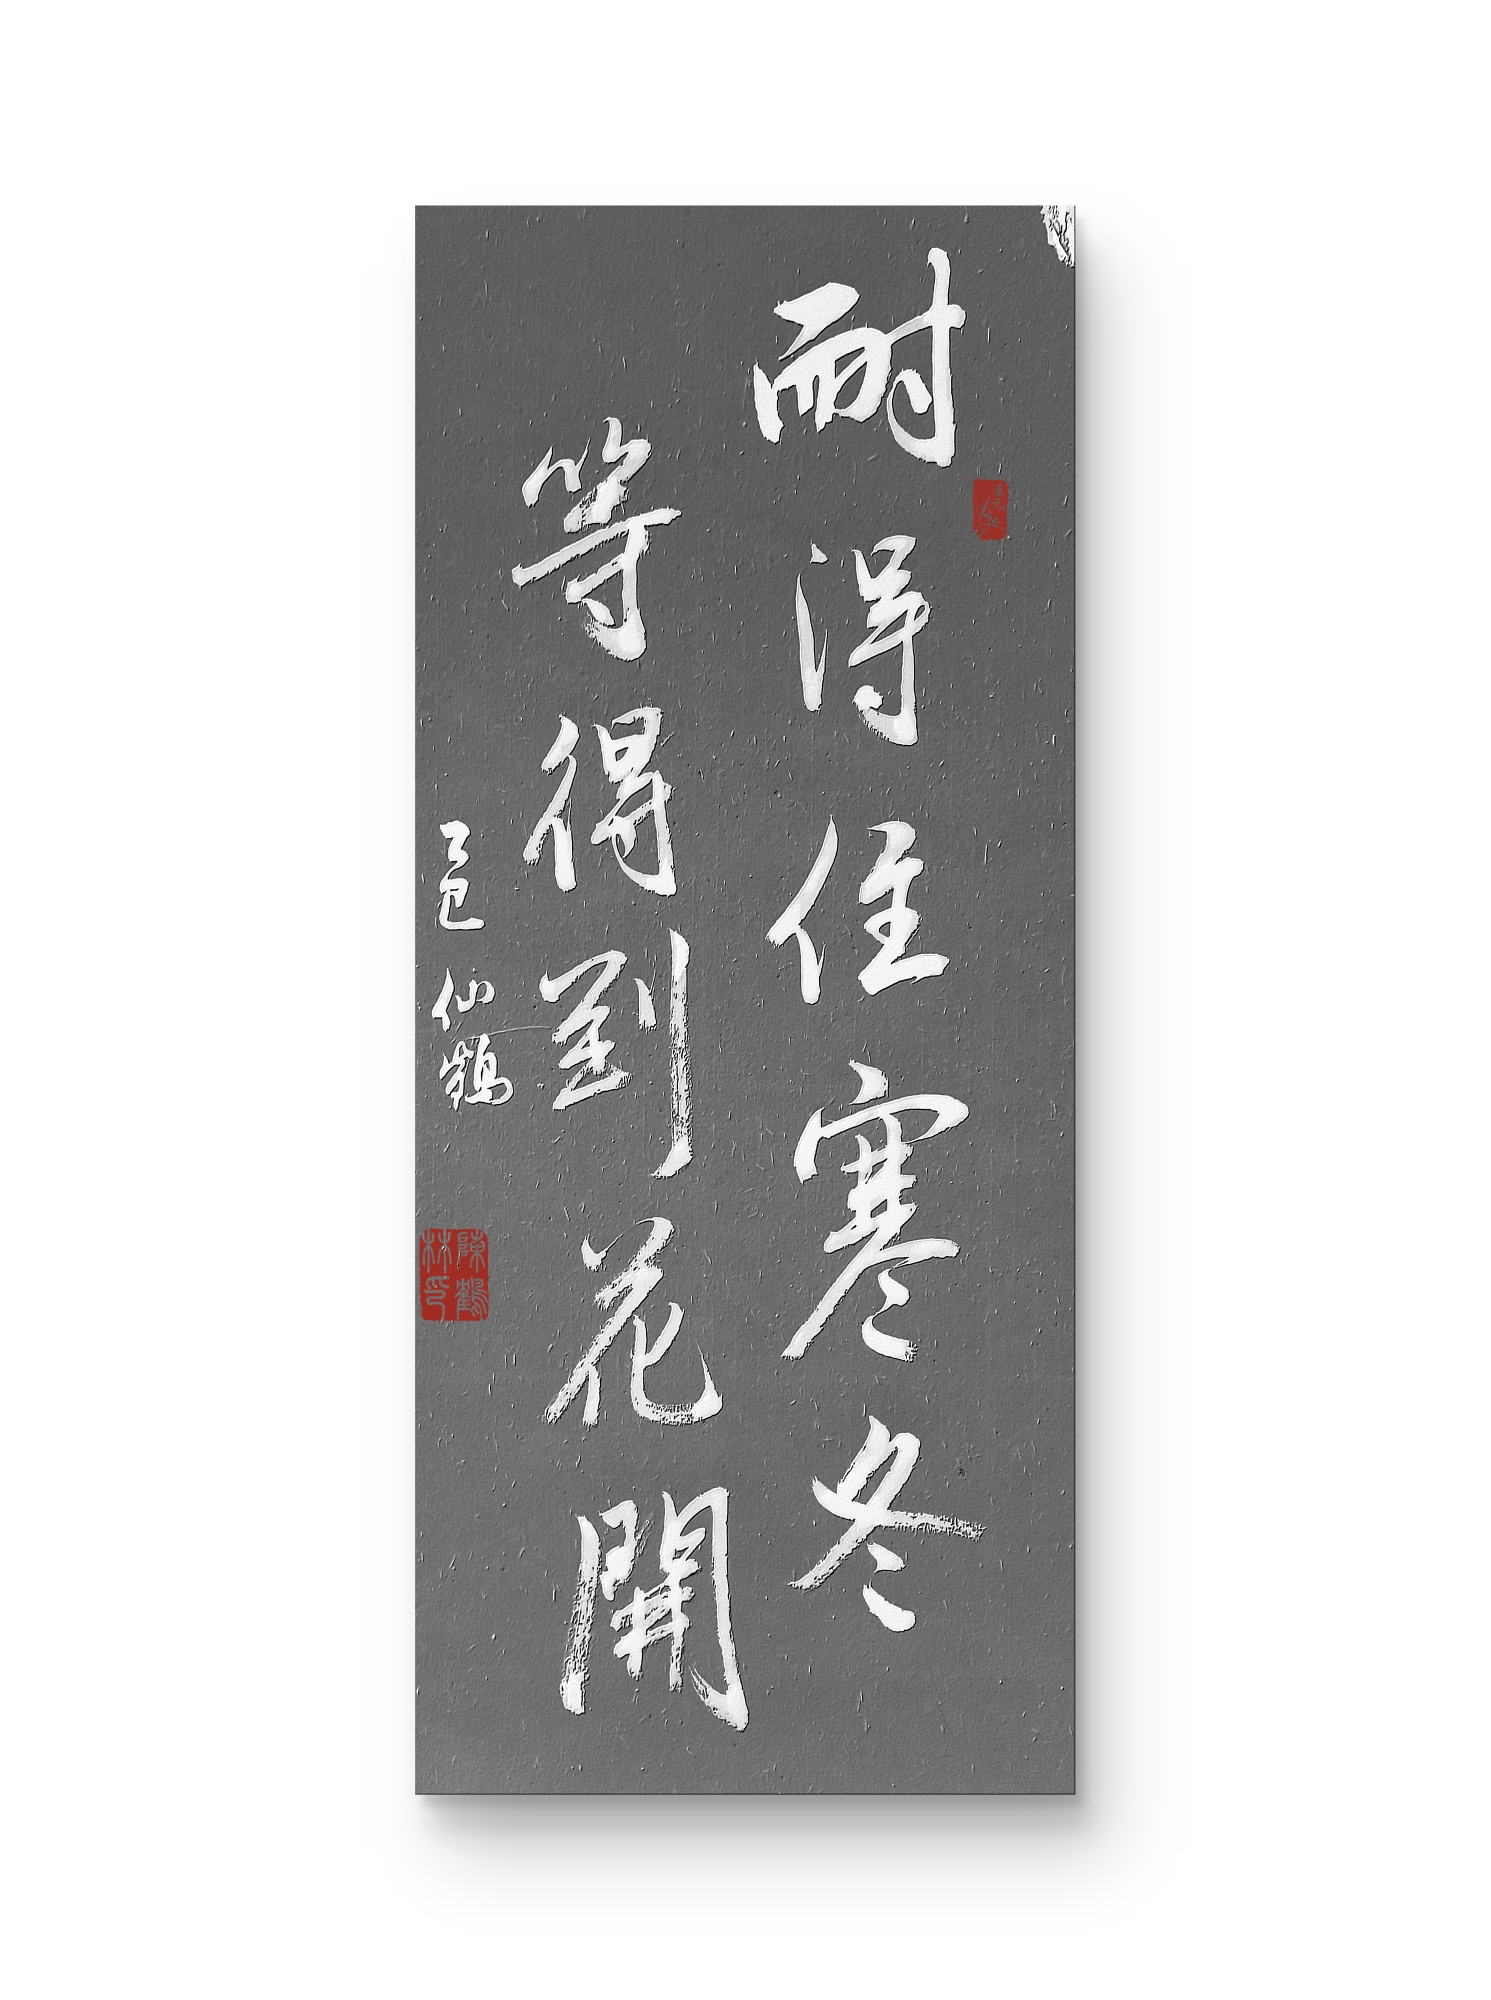 耐得住寒冬
等得到花開
乙巳 仙鶴
陳鶴林印